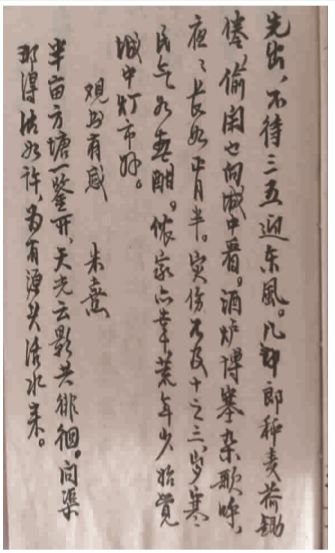 先出,不待三五迎东风。儿郎种麦荷锄
倦,偷闲也向城中看。酒炉博塞杂歌呼,
夜々长如正月半。灾伤不及十之三,岁寒
民气如春酣。侬家亦幸荒年少,始觉
城中灯市好。
观书有感 朱熹
半亩方塘一鉴开,天光云影共徘徊。问渠
那得清如许,为有源头活水来。